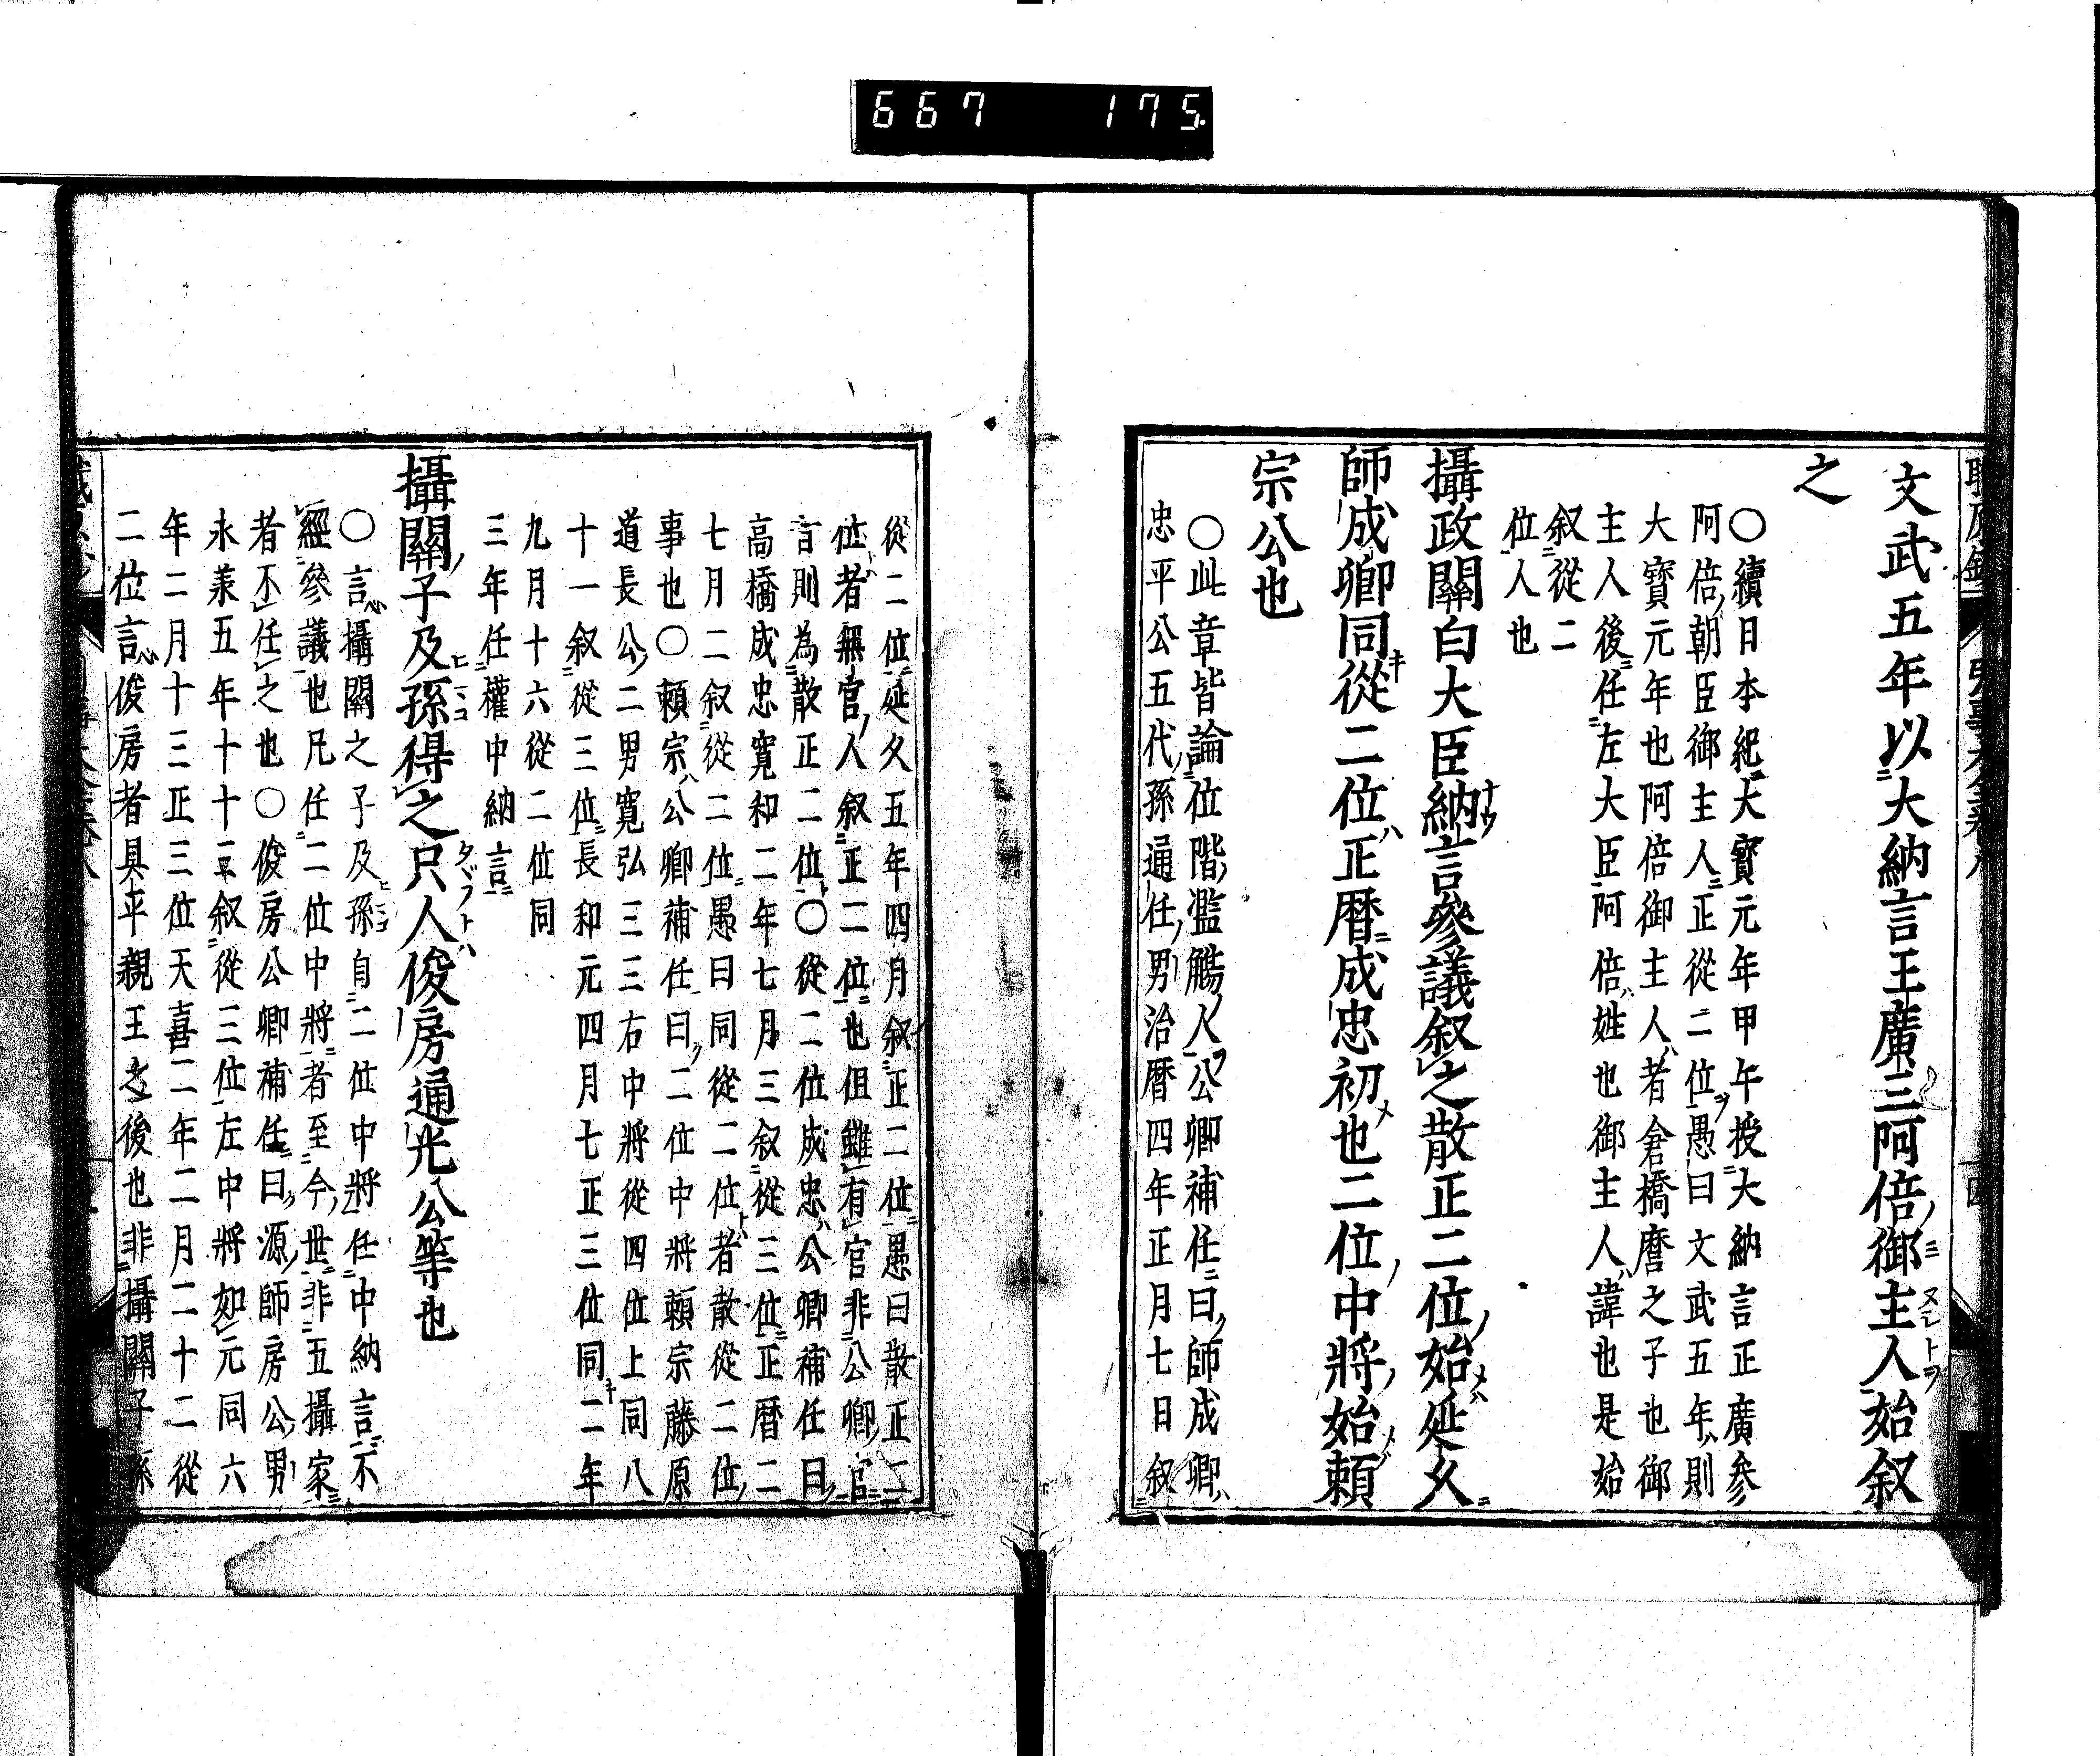 667 175
文武五年以大納言王廣三阿倍御主人始叙
之
〇續日本紀大寶元年甲午授大納言正廣參
阿倍朝臣御主人正從二位愚曰文武五年則
大寶元年也阿倍御主人者倉橋麿之子也御
主人後任左大臣阿倍姓也御主人諱也是始
叙從二
位人也
攝政關白大臣納言參議叙之散正二位始延久
師成卿同從二位正曆成忠初也二位中將始頼
宗公也
〇此章皆論位階濫觴人公卿補任曰師成卿
忠平公五代孫通任男治曆四年正月七日叙
從二位延久五年四月叙正二位愚曰散正二
位者無官人叙正二位也但雖有官非公卿官
言則為散正二位〇從二位成忠公卿補任曰
高橋成忠寛和二年七月三叙從三位正曆二
七月二叙從二位愚曰同從二位者散從二位
事也〇頼宗公卿補任曰二位中將頼宗藤原
道長公二男寛弘三三右中將從四位上同八
十一叙從三位長和元四月七正三位同二年
九月十六從二位同
三年任權中納言
攝關子及孫得之只人俊房通光公等也
〇言攝關之子及孫自二位中將任中納言不
經參議也凡任二位中將者至今世非五攝家
者不任之也〇俊房公卿補任曰源師房公男
永兼五年十十二叙從三位左中將如元同六
年二月十三正三位天喜二年二月二十二從
二位言俊房者具平親王之後也非攝關子孫